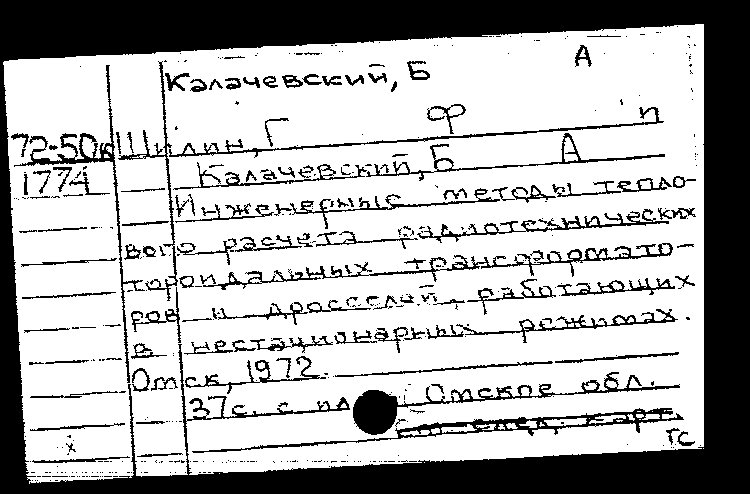 Калачевский, Б А
72-50к Шилин, Г Ф п
1774 Калачевский, Б А
Инженерные методы тепло-
вого расчета радиотехнических
тороидальных трансформато-
ров и дросселей, работающих
в нестационарных режимах.
Омск, 1972.
37с. с ил. (Омское обл.
См. след. карт.
ГС